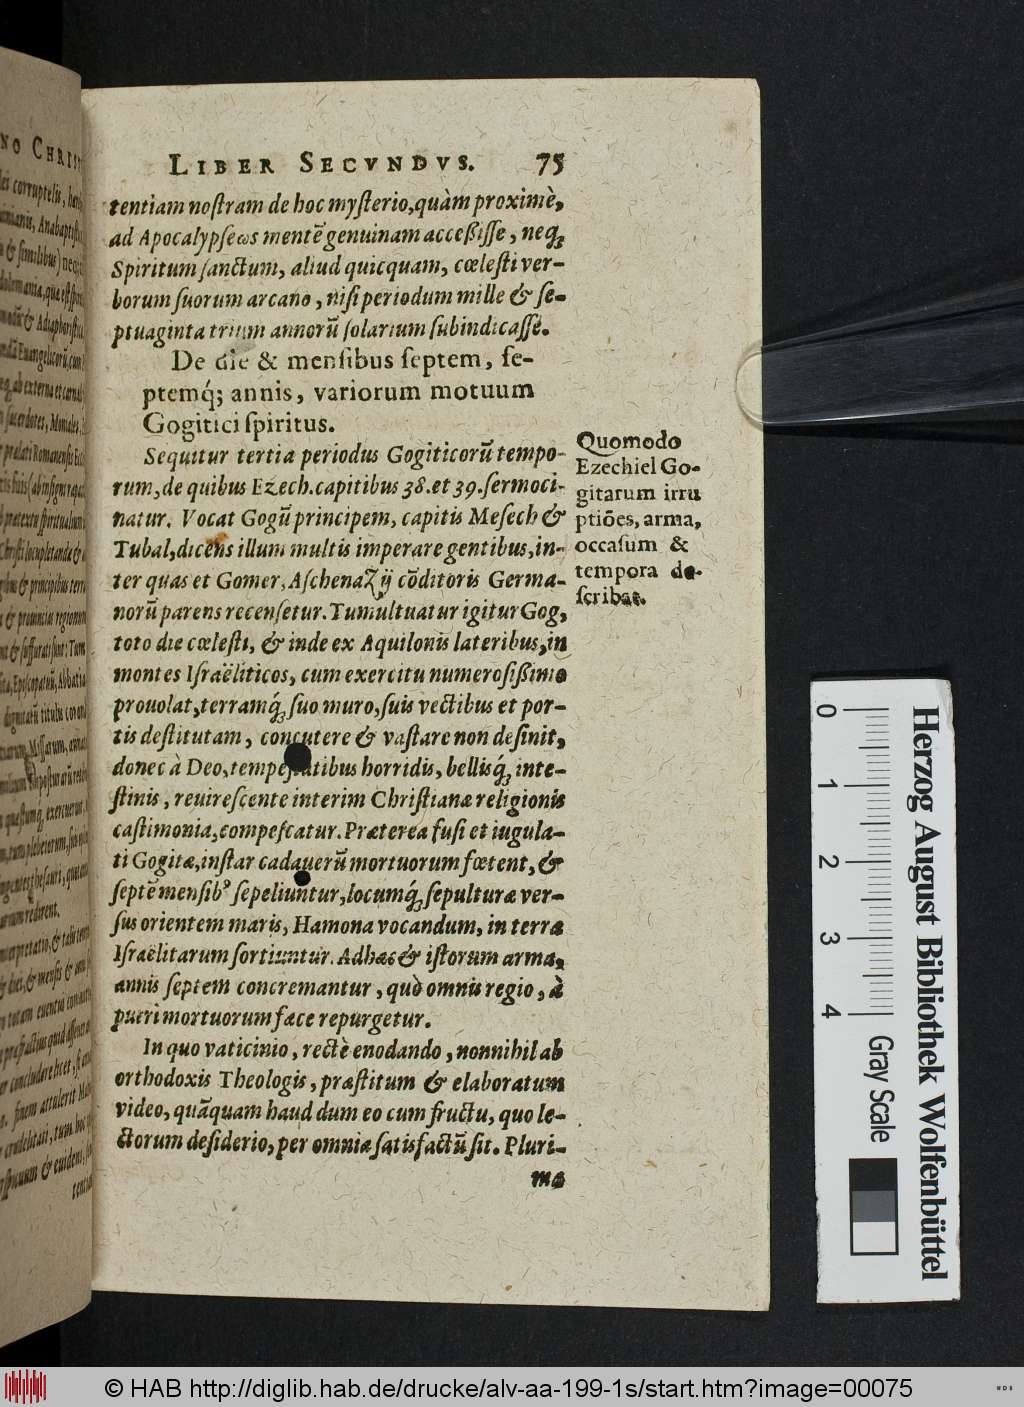 LIBER SECVNDVS. 75
tentiam noſtram de hoc myſterio, quàm proximè,
ad Apocalypſeωs mentē genuinam acceßiſſe, neq́;
Spiritum ſanctum, aliud quicquam, cœleſti ver-
borum ſuorum arcano, niſi periodum mille & ſe-
ptuaginta trium annorū ſolarium ſubindicaſſe.
De die & menſibus ſeptem, ſe-
ptemq́; annis, variorum motuum
Gogitici ſpiritus.
Sequitur tertia periodus Gogiticorū tempo-
rum, de quibus Ezech. capitibus 38. et 39. ſermoci-
natur. Vocat Gogū principem, capitis Meſech &
Tubal, dicens illum multis imperare gentibus, in-
ter quas et Gomer, Aſchenazij cōditoris Germa-
norū parens recenſetur. Tumultuatur igitur Gog,
toto die cœleſti, & inde ex Aquilonis lateribus, in
montes Iſraëliticos, cum exercitu numeroſißimo
prouolat, terramq́; ſuo muro, ſuis vectibus et por-
tis deſtitutam, concutere & vaſtare non deſinit,
donec à Deo, tempeſtatibus horridis, bellisq́; inte-
ſtinis, reuireſcente interim Chriſtianæ religionis
caſtimonia, compeſcatur. Præterea fuſi et iugula-
ti Gogitæ, inſtar cadauerū mortuorum fœtent, &
ſeptē menſibꝰ ſepeliuntur, locumq́; ſepulturæ ver-
ſus orientem maris, Hamona vocandum, in terra
Iſraëlitarum ſortiuntur. Adhæc & iſtorum arma,
annis ſeptem concremantur, quò omnis regio, à
pueri mortuorum fæce repurgetur.
In quo vaticinio, rectè enodando, nonnihil ab
orthodoxis Theologis, præſtitum & elaboratum
video, quāquam haud dum eo cum fructu, quo le-
ctorum deſiderio, per omnia ſatisfactū ſit. Pluri-
ma
Quomodo
Ezechiel Go-
gitarum irru
ptiōes, arma,
occaſum &
tempora de-
ſcribat.
0 1 2 3 4
Gray Scale
Herzog August Bibliothek Wolfenbüttel
© HAB http://diglib.hab.de/drucke/alv-aa-199-1s/start.htm?image=00075